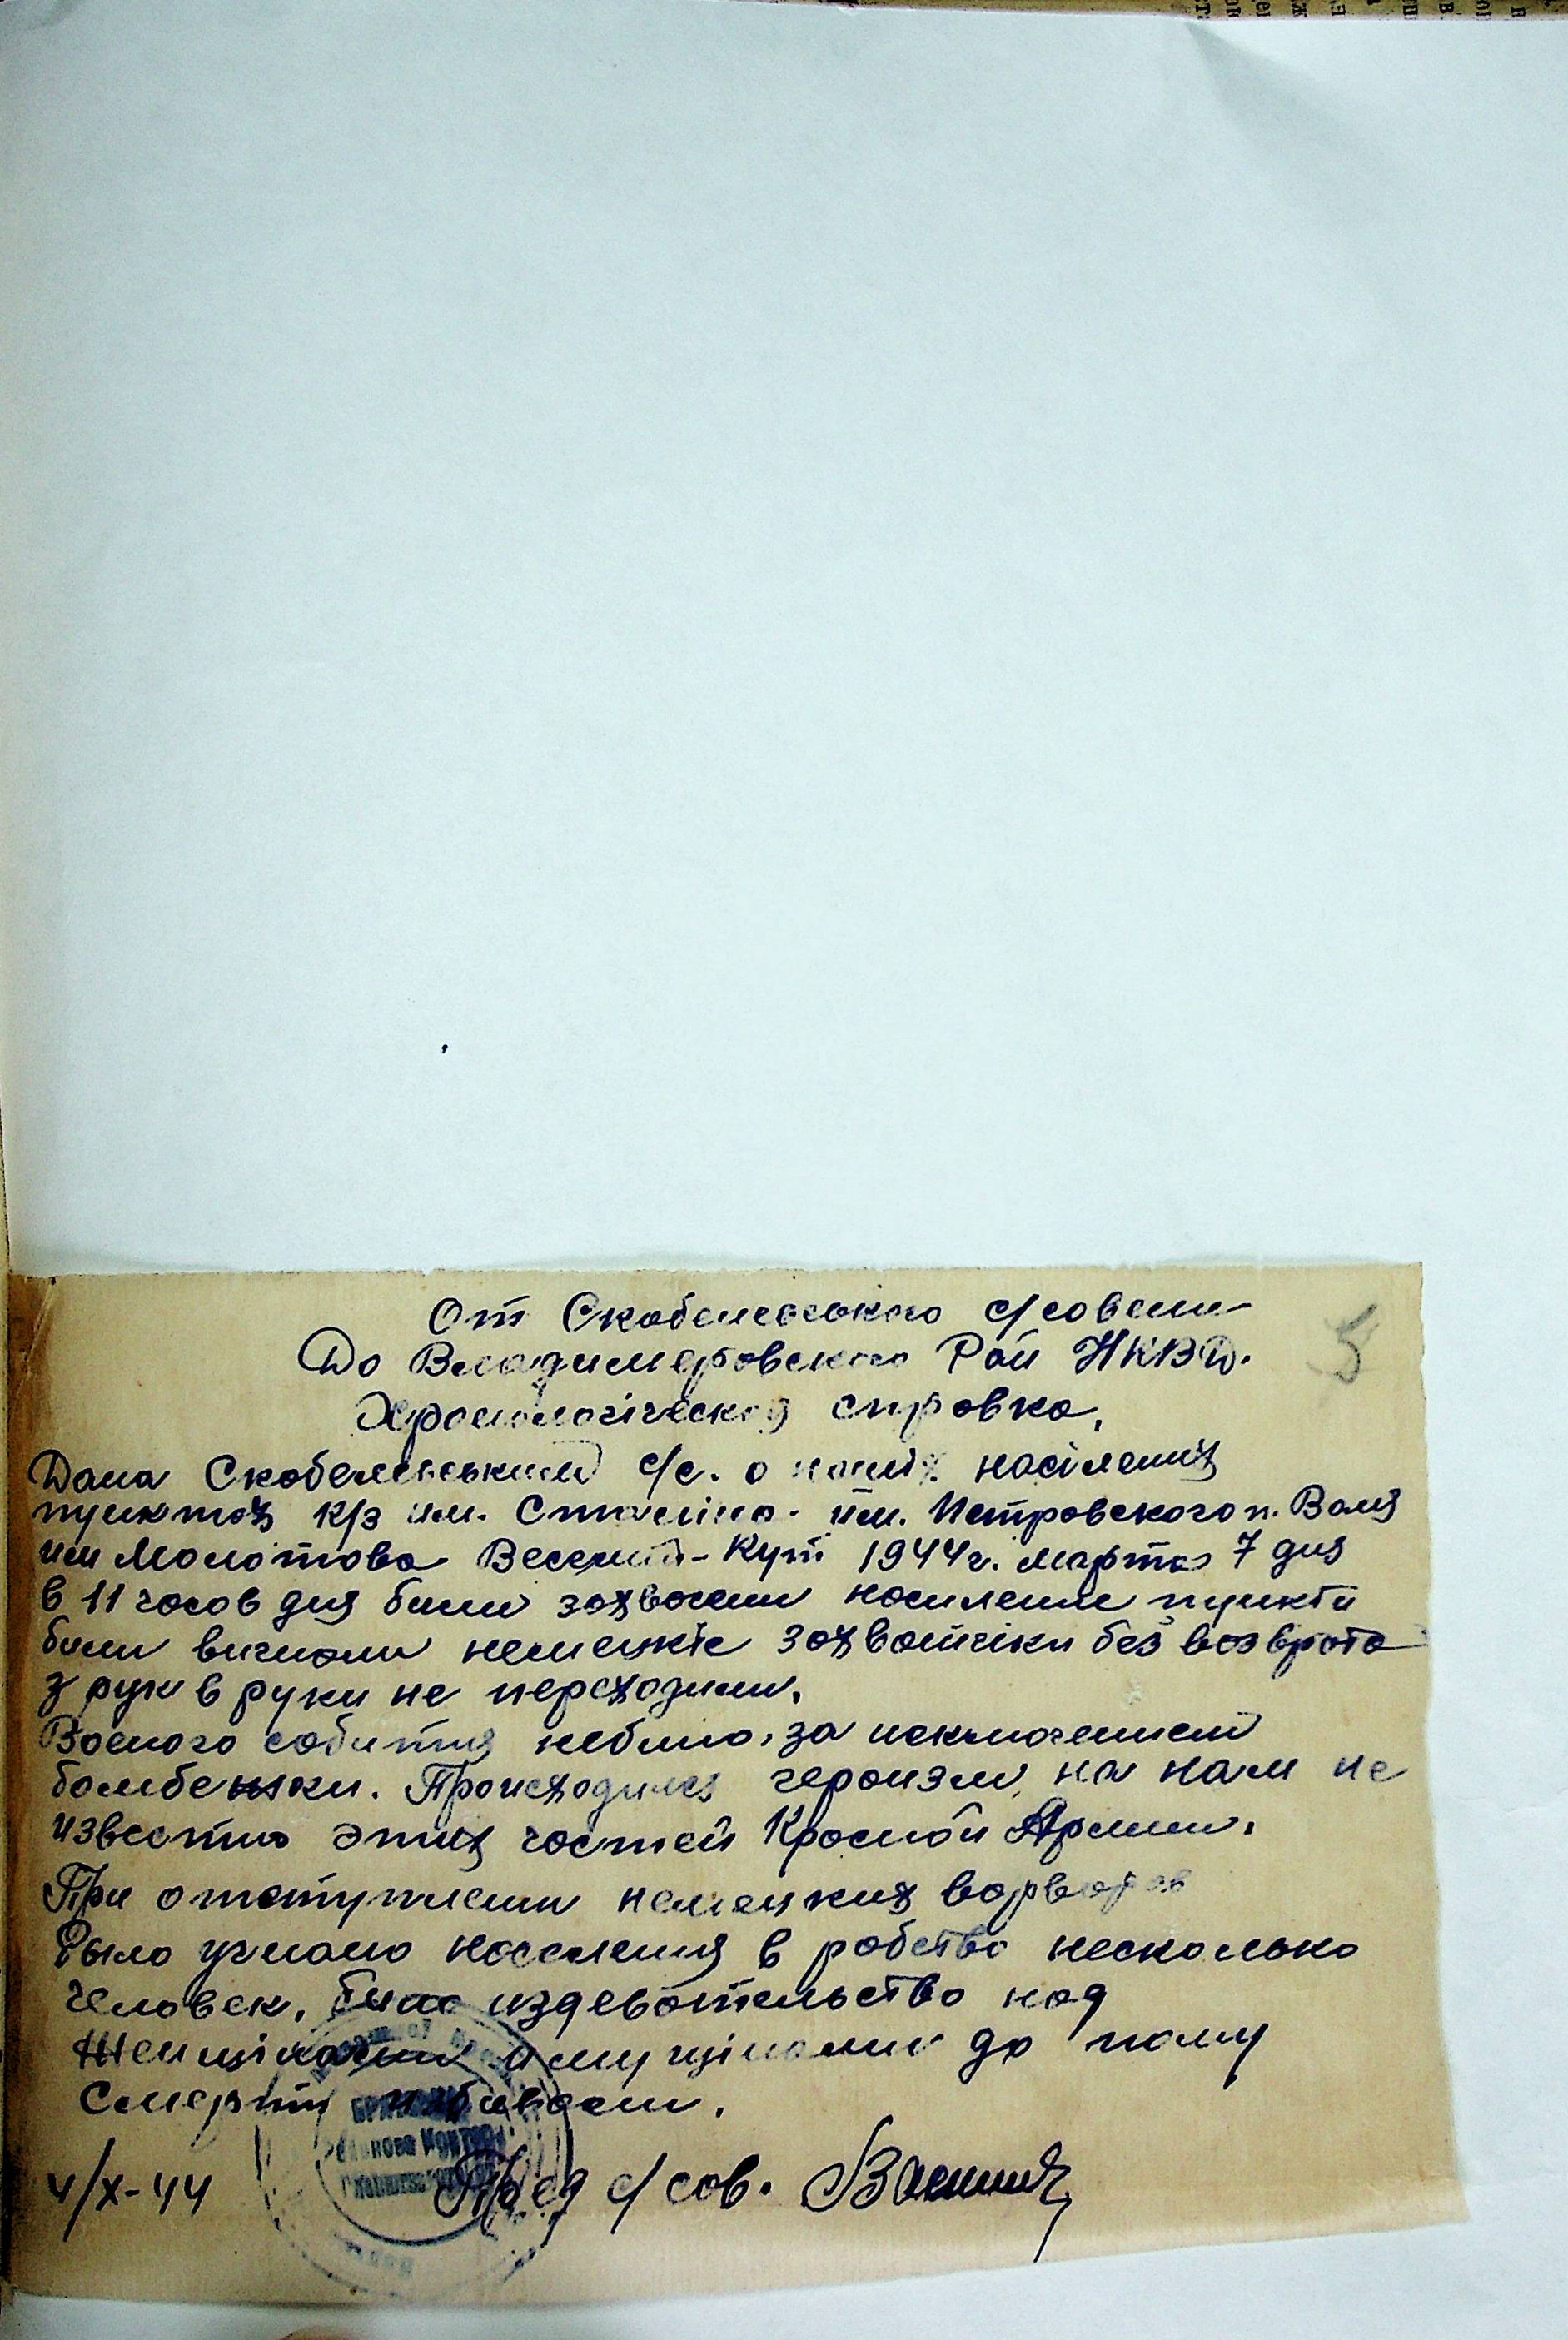 От Скобелевського с/совета
До Владимеровского Рай НКВД.
5
Хронологіческая справка.
Дана Скобелевським с/с. о наших насіленых
пунктах к/з им. Сталіна. им. Петровского п. Валя
им Молотова Веселий-Кут 1944г. марта 7 дня
в 11 часов дня били захвачени насиление пункти
били вигнани немецкіе захватчіки без возврата
з рук в руки не переходили.
Военого события небило, за исключением
бомбежки. Происходился героизм, на нам не
известно этих частей Красной Армии.
При отступлении немецких варваров
Было угнано населения в рабство несколько
человек, било издевательство над
Женщінами и мущінами до полу
Смерти избиваем.
4/X-44 Пред с/сов.